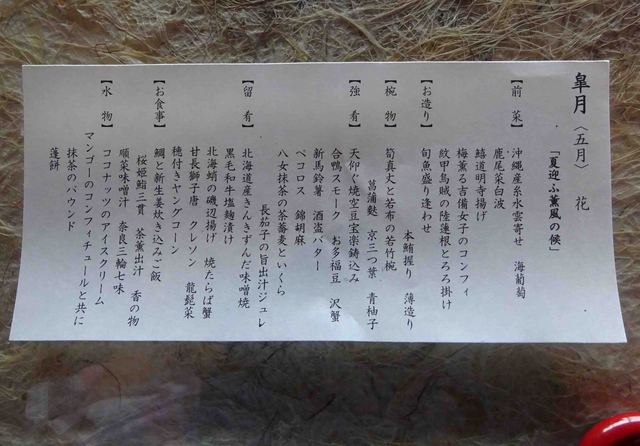 皐月〈五月〉 花
「夏迎ふ薫風の候」
【前菜】 沖縄産糸水雲寄せ 海葡萄
鹿尾菜白波
鱚道明寺揚げ
梅薫る吉備女子のコンフィ
紋甲烏賊の陸蓮根とろろ掛け
【お造り】 旬魚盛り逢わせ
本鮪握り 薄造り
【椀物】 筍真丈と若布の若竹椀
菖蒲麩 京三つ葉 青柚子
【強肴】 天仰ぐ焼空豆宝楽鋳込み
合鴨スモーク お多福豆 沢蟹
新馬鈴薯 酒盗バター
ペコロス 錦胡麻
八女抹茶の茶蕎麦といくら
長茄子の旨出汁ジュレ
【留肴】 北海道産きんきずんだ味噌焼
黒毛和牛塩麹漬け
北海蛸の磯辺揚げ 焼たらば蟹
甘長獅子唐 クレソン 龍髭菜
穂付きヤングコーン
【お食事】 鯛と新生姜炊き込みご飯
桜姫鮨三貫 茶薫出汁 香の物
順菜味噌汁 奈良三輪七味
【水物】 ココナッツのアイスクリーム
マンゴーのコンフィチュールと共に
抹茶のパウンド
蓬餅